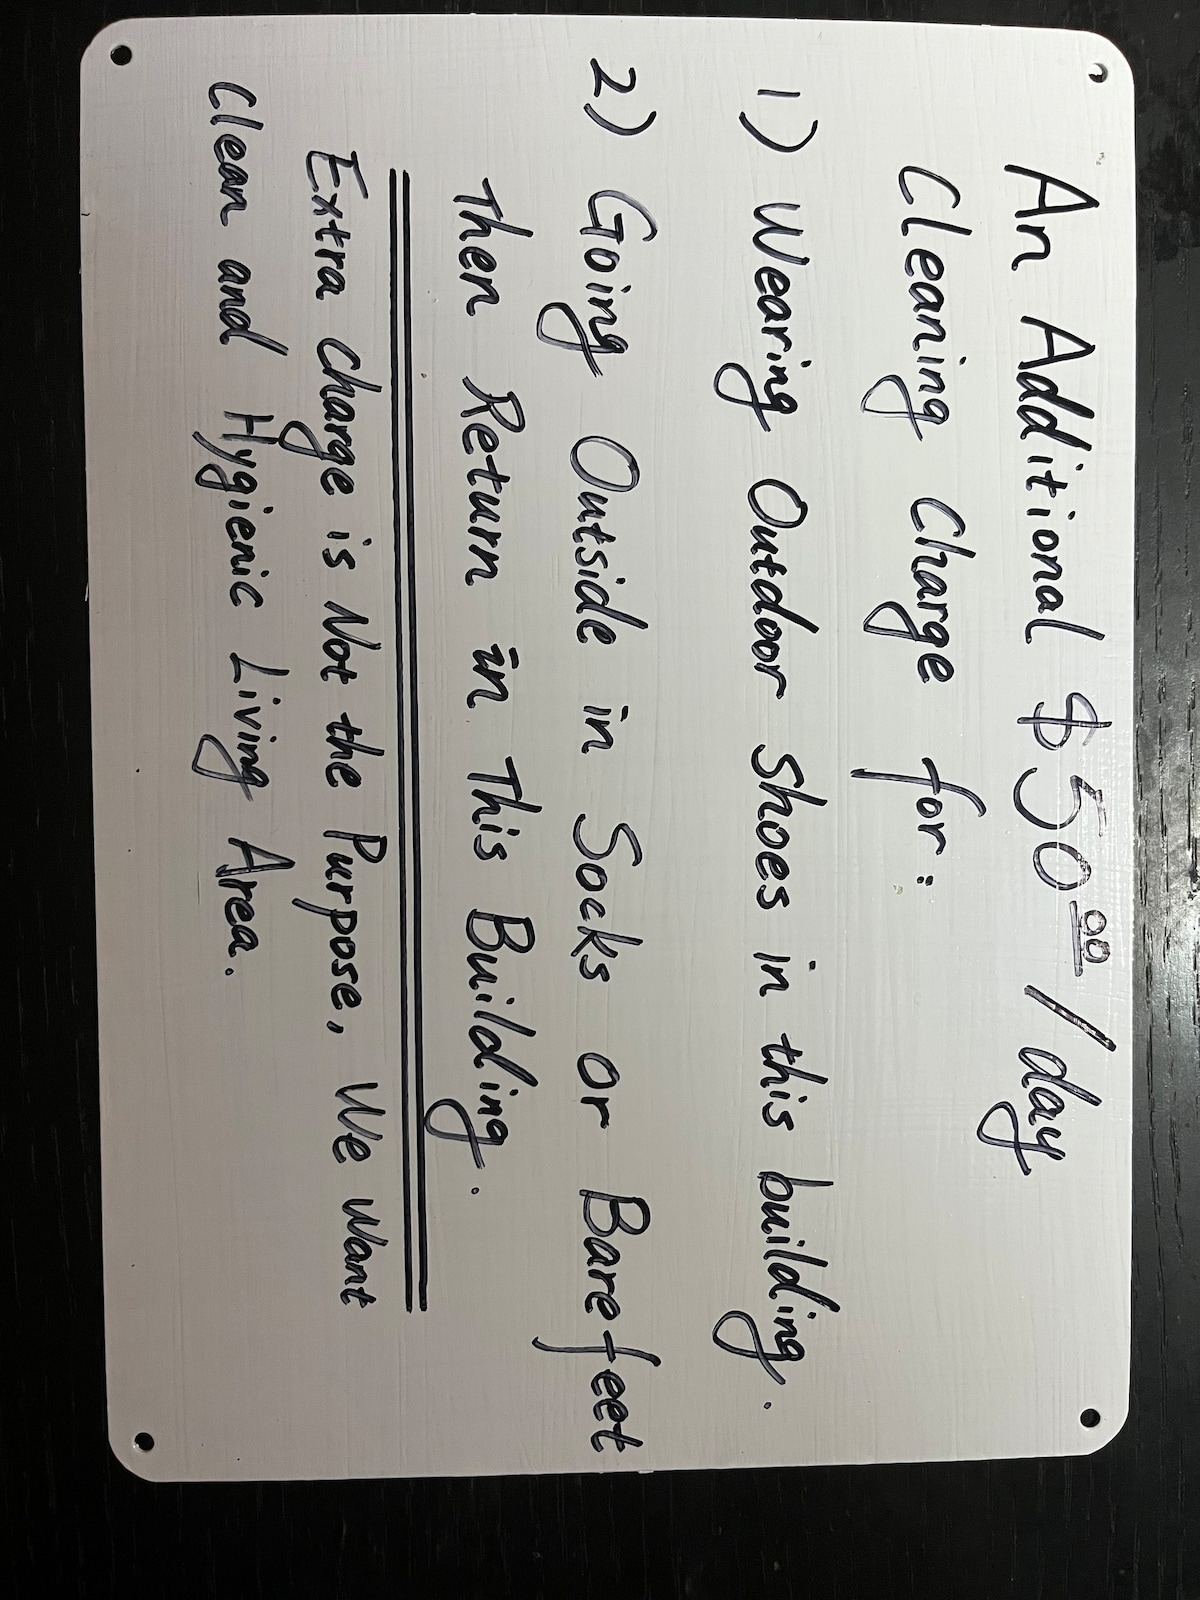 An Additional $50.00/day
Cleaning Charge for:
1) Wearing Outdoor Shoes in this building.
2) Going Outside in Socks or Barefeet
Then Return in This Building.
Extra Charge is Not the Purpose, We Want
Clean and Hygienic Living Area.